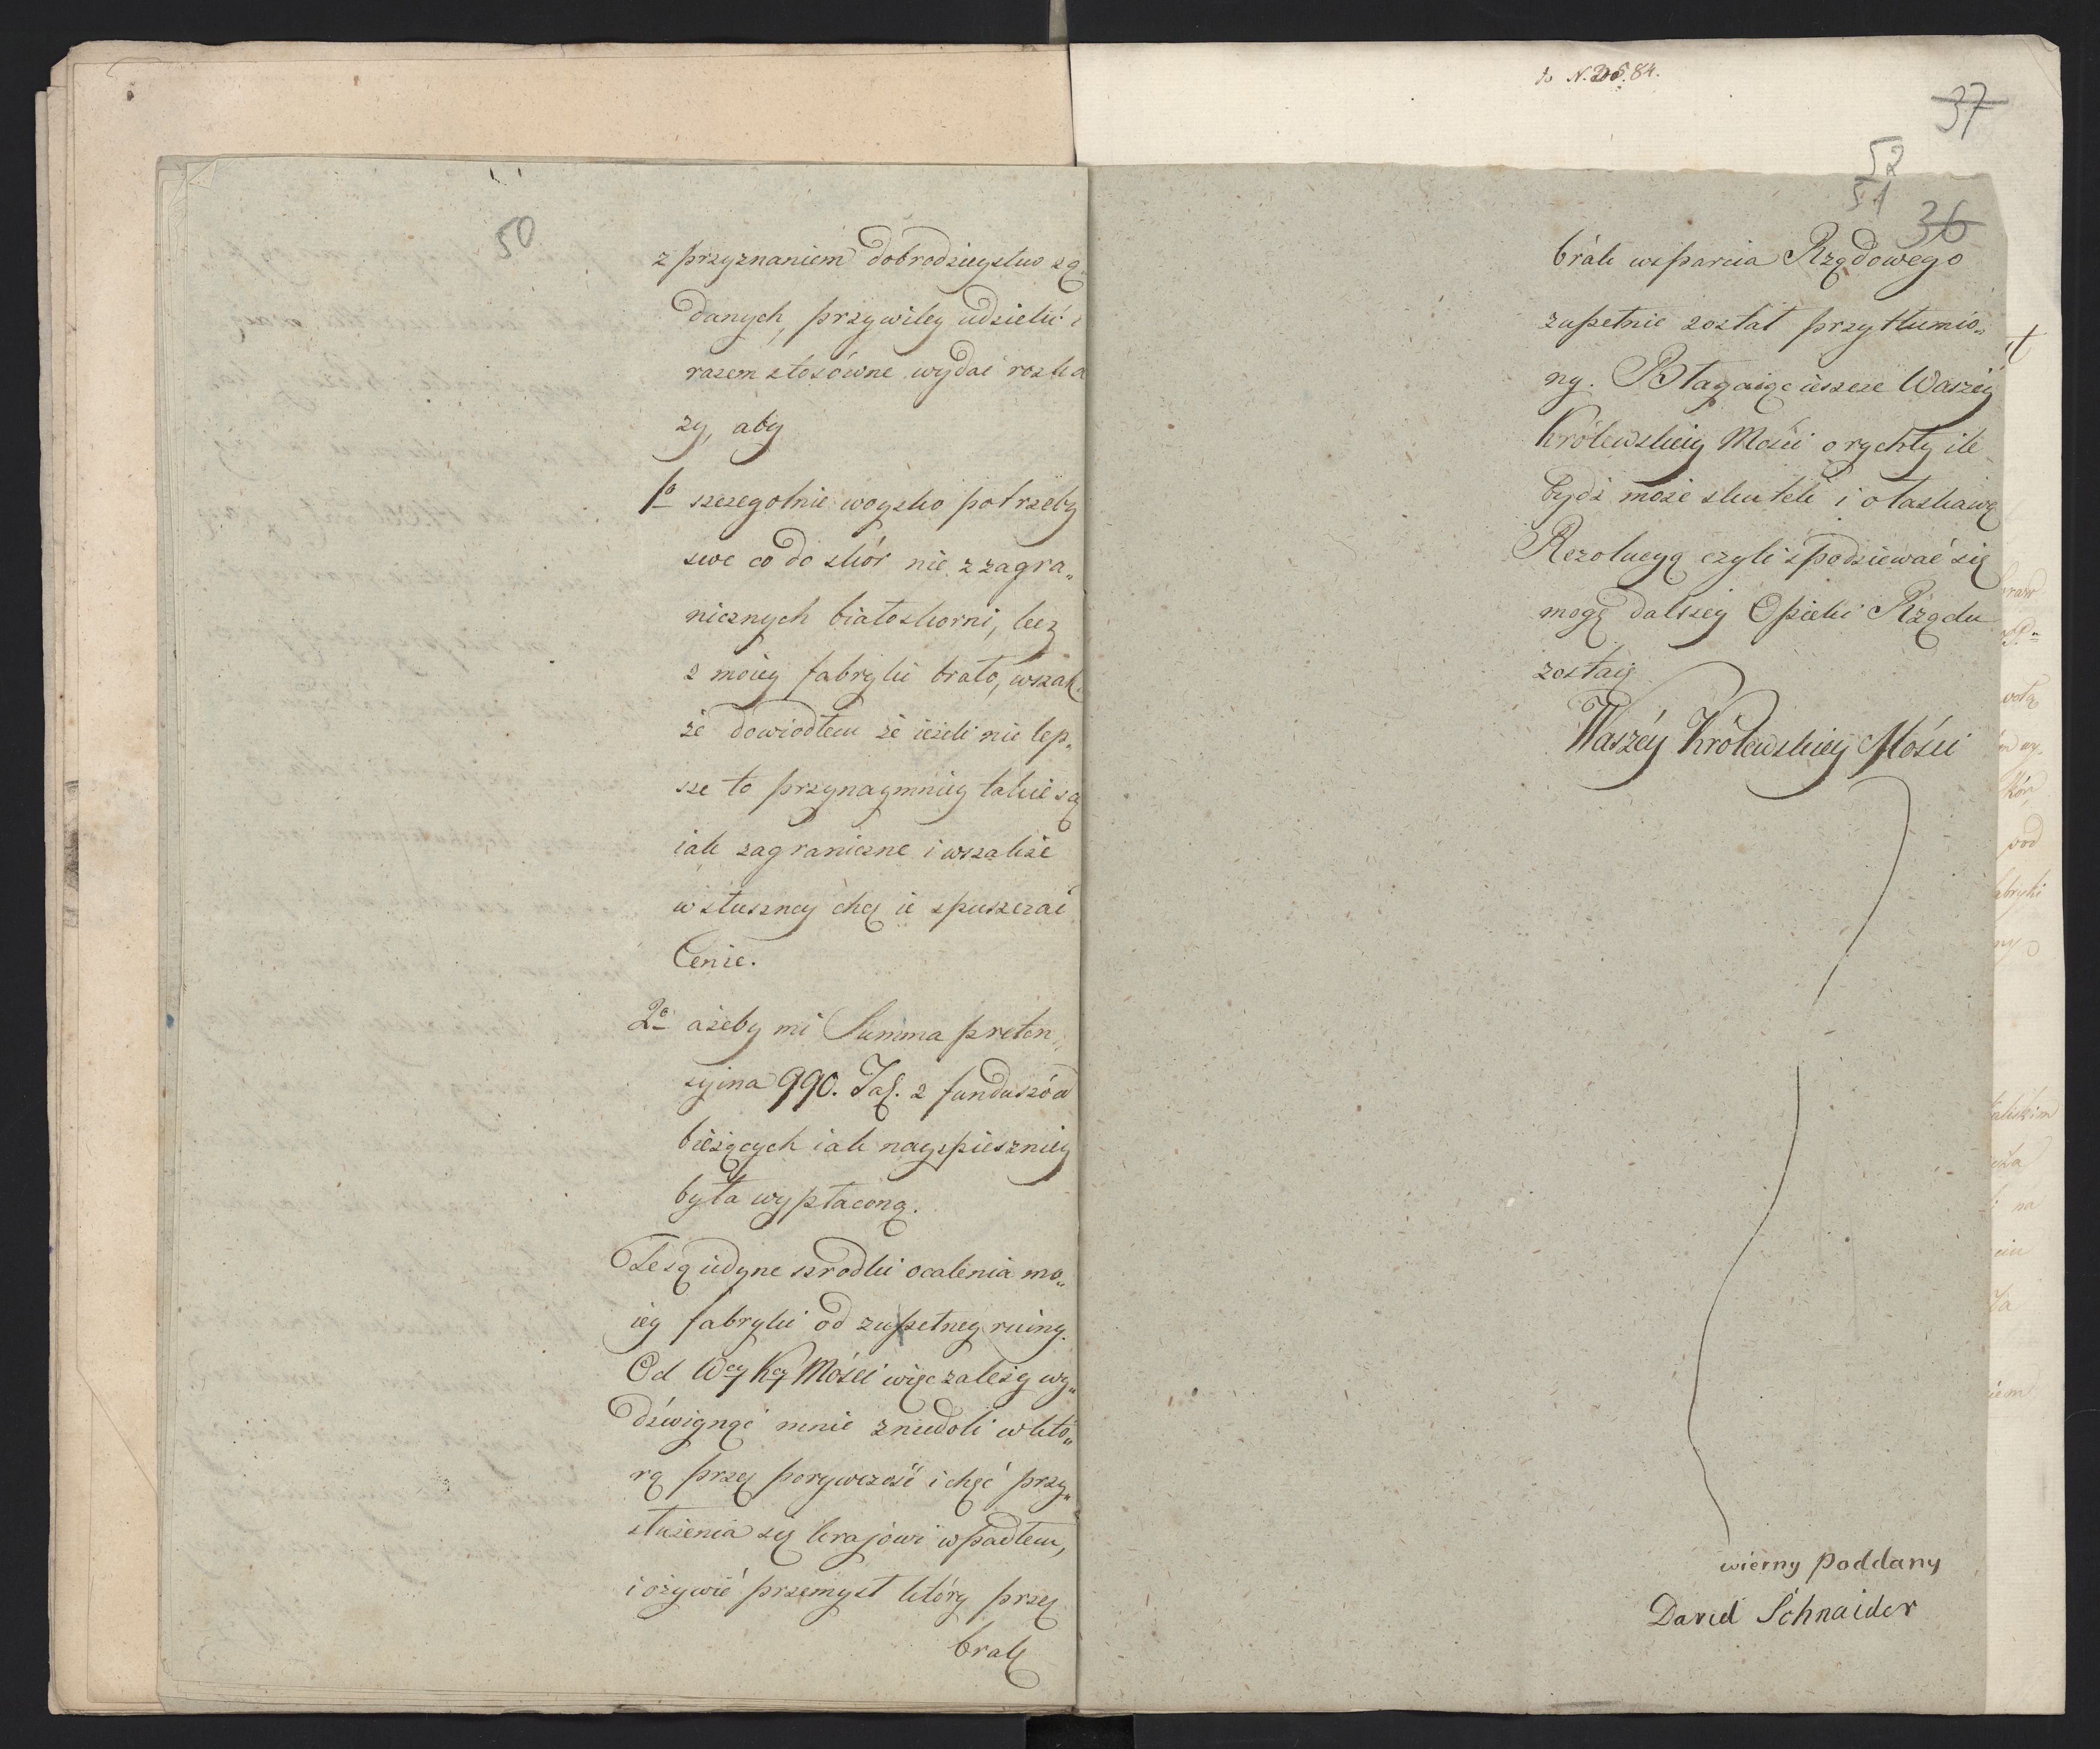 50
z przyznaniem dobrodzieystw zą
danych, przywiley udzielić i
razem stosówne wydać rozka
zy, aby
1o szczegolnie woysko potrzeby
swe co do skór nie z zagra„
nicznych białoskorni, lecz
z moiey fabryki brało, wszak
że dowiodłem że ieżeli nie lep„
sze to przynaymniey takie są
iak zagraniczne i wszakże
w słuszney chcę ie spuszczać
Cenie.
2o ażeby mi Summa preten„
syina 990. Tal. z funduszów
bieżących iak nayspieszniey
była wypłaconą.
Te są iedyne szrodki ocalenia mo„
iey fabryki od zupełney ruiny.
Od Wey Key Mości więc zależy wy„
dźwignąć mnie z niedoli w któ„
rą przez porywczość i chęć przy„
służenia się krajowi wpadłem,
i ożywić przemysł który przez
brak
do N. 84.
37
52
51
36
brak wsparcia Rządowego
zupełnie został przytłumio„
ny. Błagaiąc ieszcze Waszéy
Królewskiey Mości o rychły ile
bydź może skutek i o łaskawą
Rezolucyą czyli spodziewać się
mogę dalszey Opieki Rządu
zostaię
Waszéy Królewskiey Mości
wierny poddany
David Schnaider